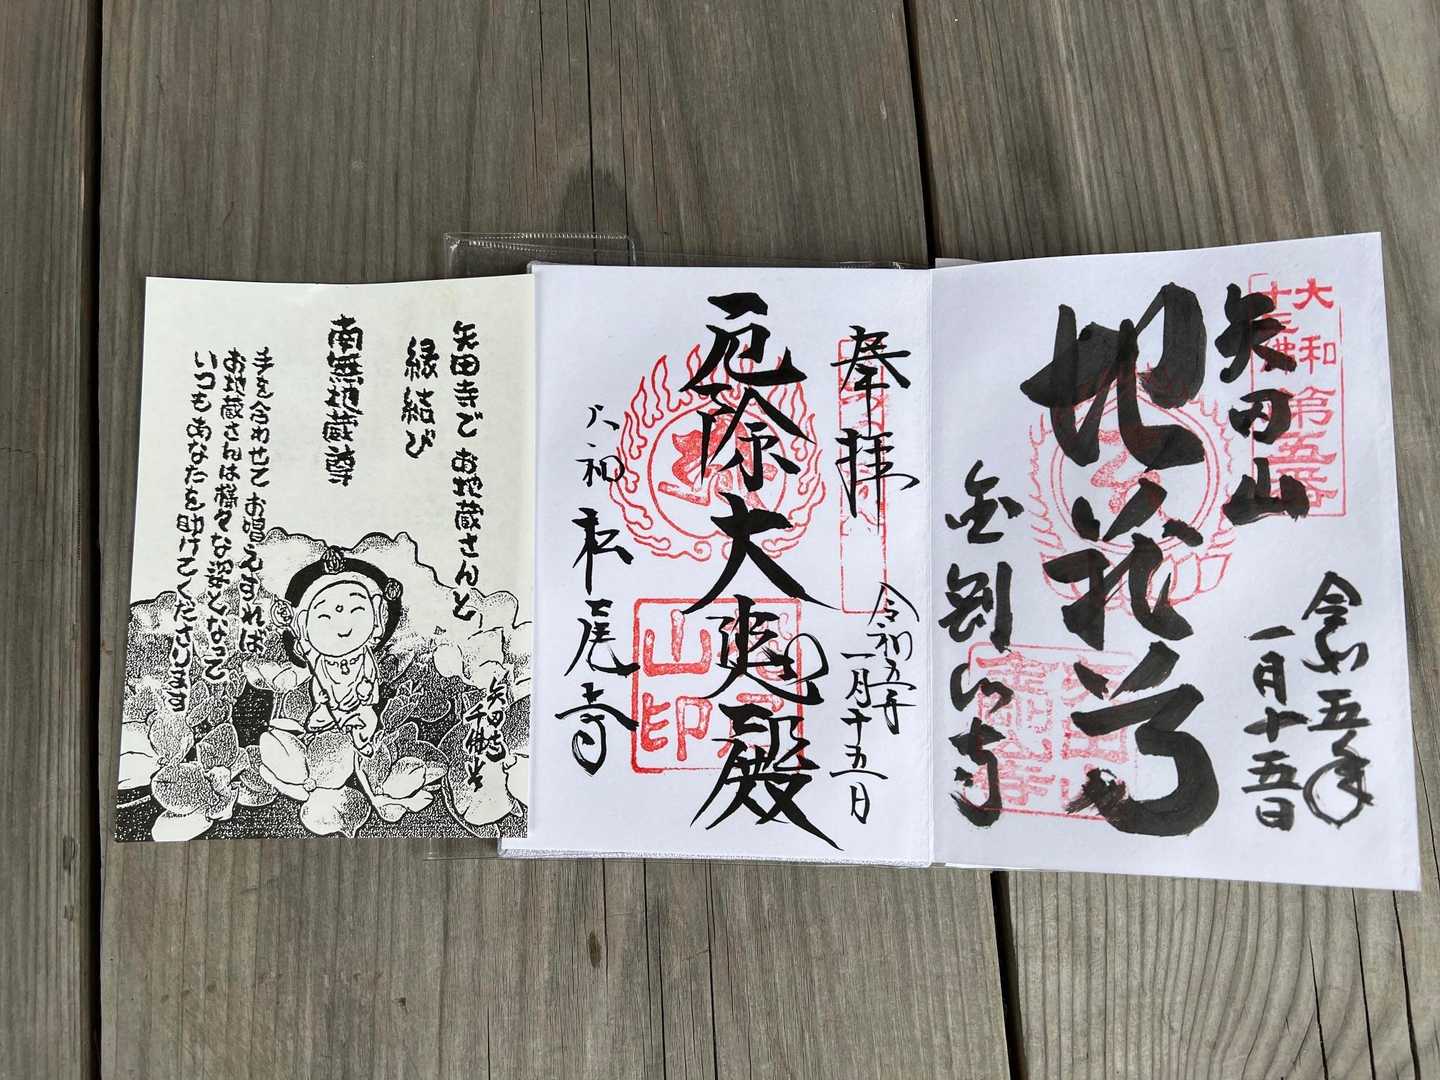 大和
十三佛
第五番
矢田山
地蔵尊
金剛山寺
令和五年
一月十五日
奉拝
令和五年
一月十五日
厄除大悲殿
松尾寺
山印
矢田寺でお地蔵さんと
縁結び
南無地蔵尊
手を合わせてお唱えすれば
お地蔵さんは様々な姿となって
いつもあなたを助けてくださいます
矢田寺